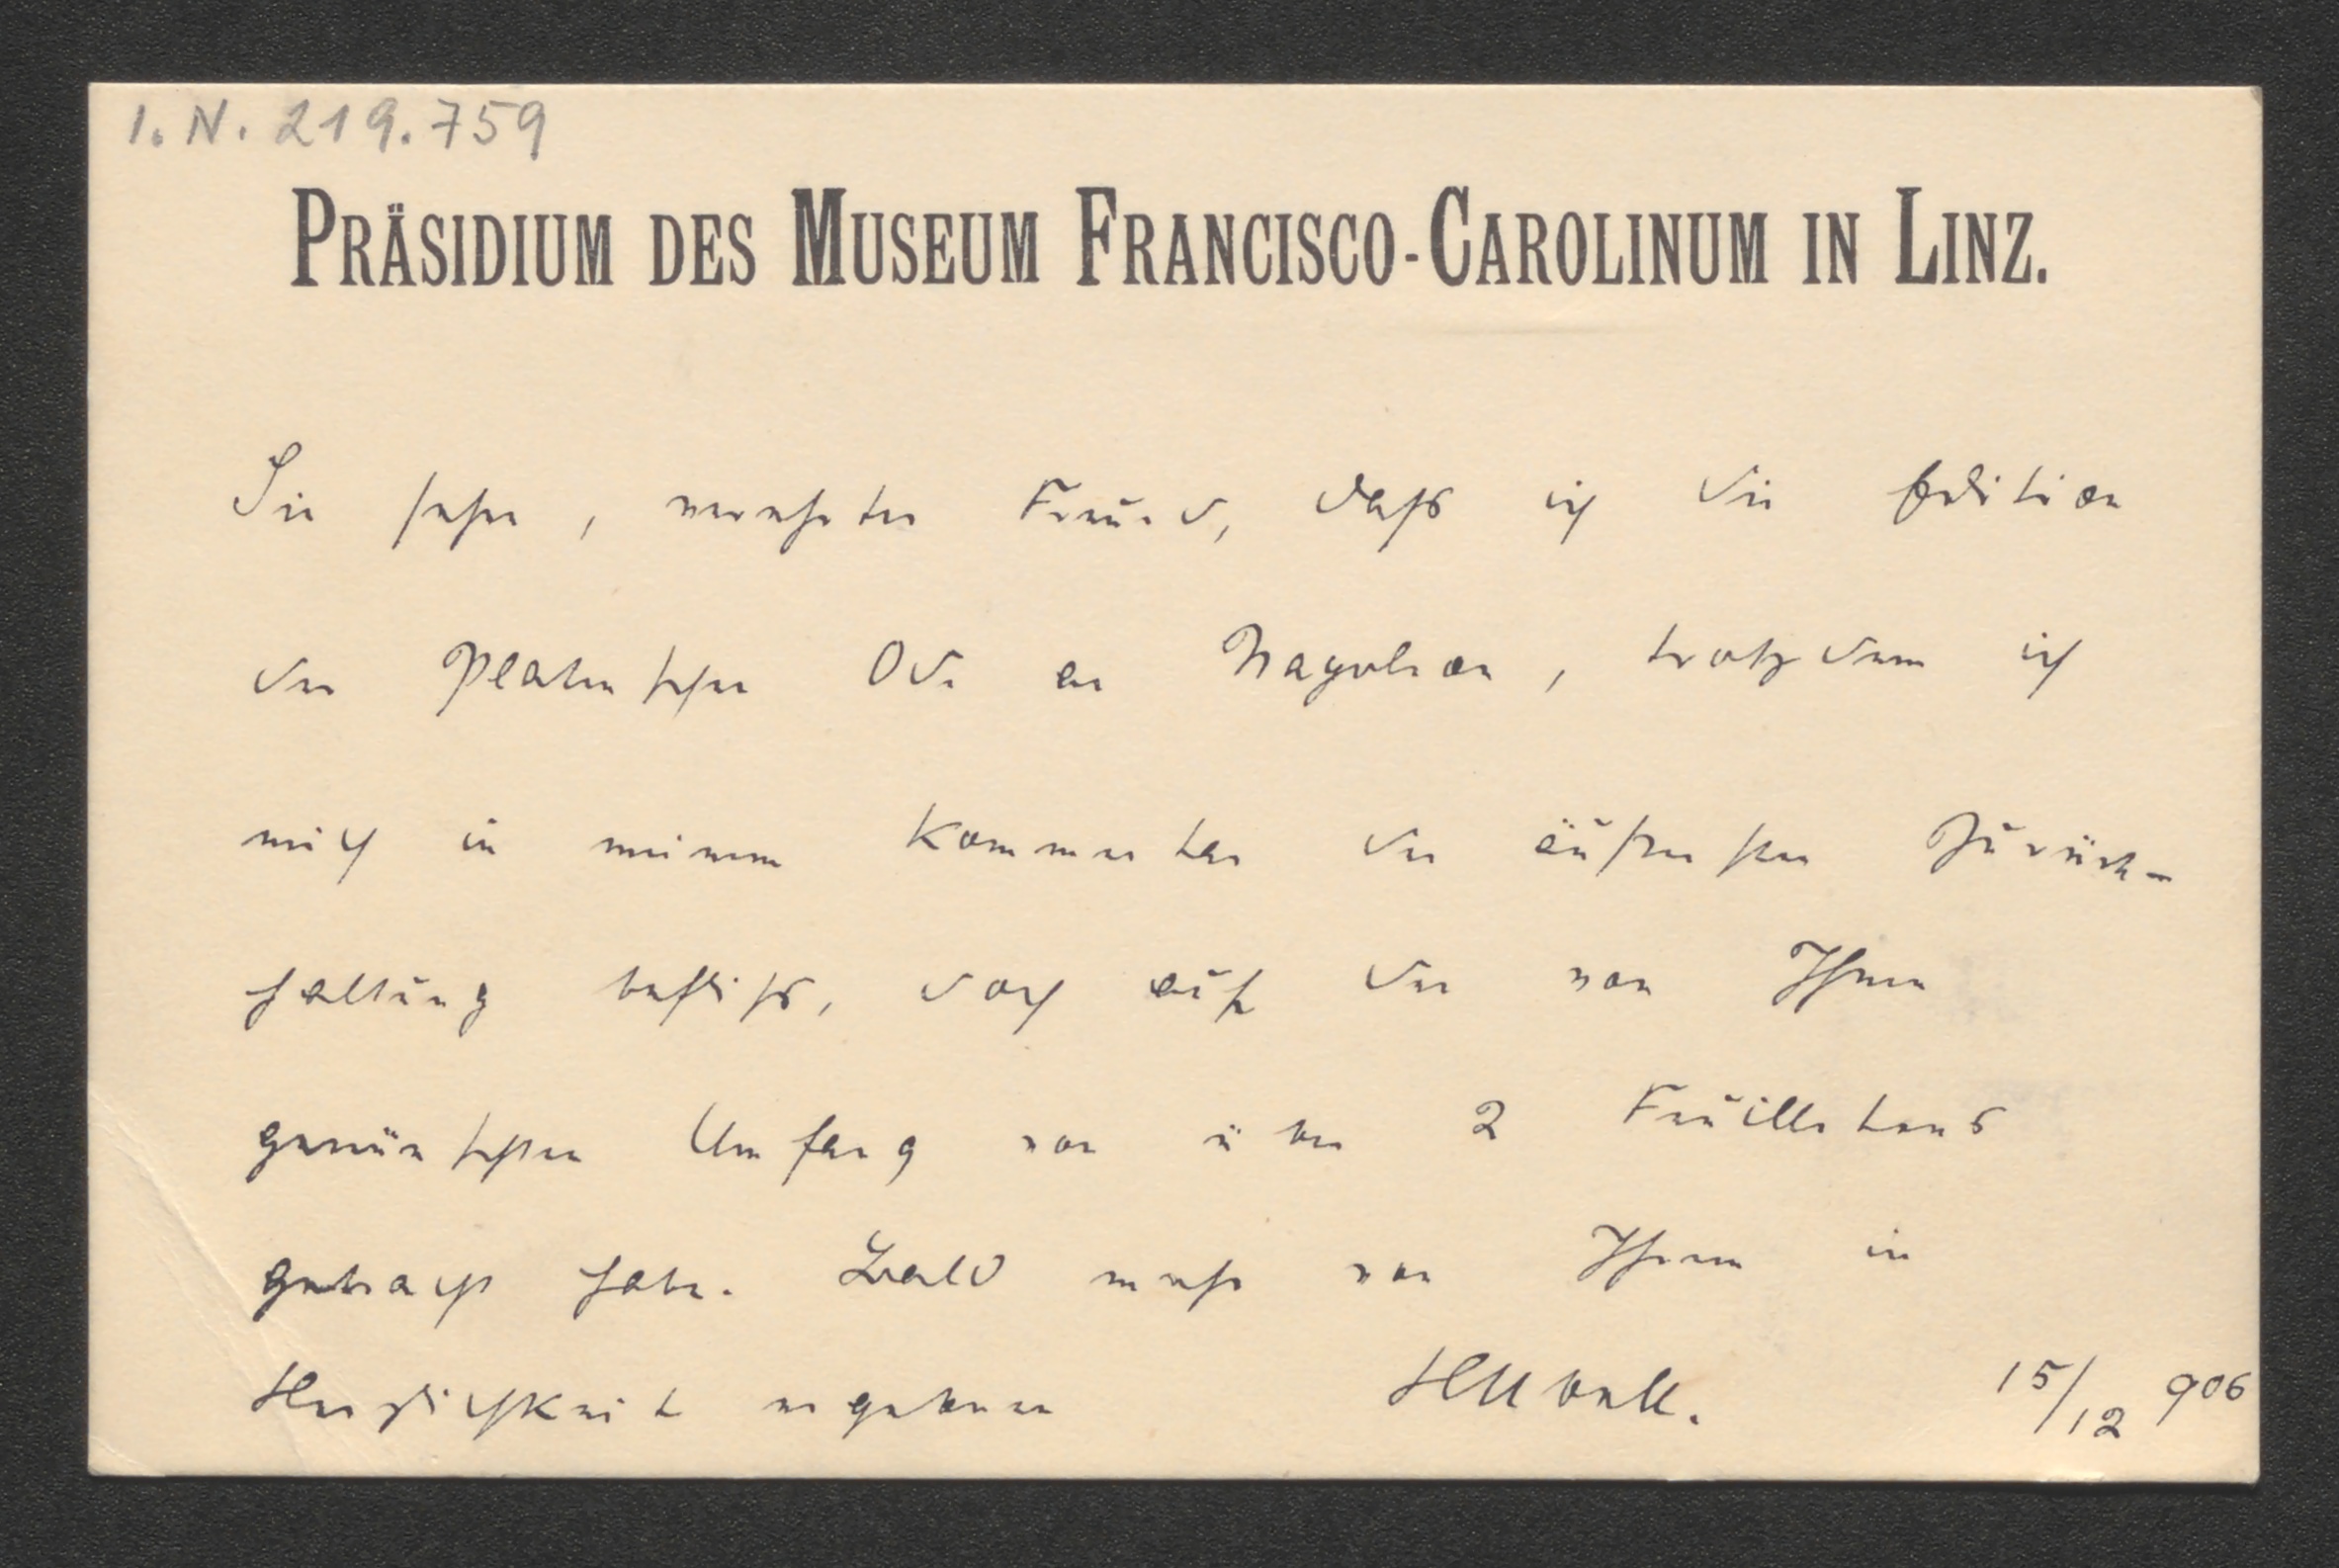 I. N. 219.759
PRÄSIDIUM DES MUSEUM FRANCISCO-CAROLINUM IN LINZ.
Sie sehen, verehrter Freund, dass ich die Edition
der Platenschen Ode an Napoleon, trotzdem ich
mich in meinem Kommentar der äußersten Zurück-
haltung befliss, doch auf den von Ihnen
gewünschten Umfang von über 2 Feuilletons
gebracht habe. Bald mehr von Ihrem in
Herzlichkeit ergebenen HUbell. 15/12 906